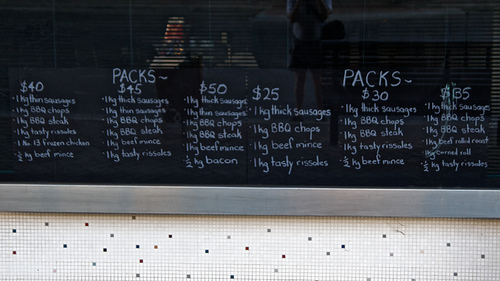 PACKS~
$40
· 1kg thin sausages
· 1kg BBQ chops
· 1kg BBQ steak
· 1kg tasty rissoles
· 1 No. 13 frozen chicken
· ½ kg beef mince
$45
· 1kg thick sausages
· 1kg BBQ chops
· 1kg BBQ steak
· 1kg beef mince
· 1kg tasty rissoles
$50
· 1kg thick sausages
· 1kg thin sausages
· 1kg BBQ chops
· 1kg BBQ steak
· 1kg beef mince
· ½ kg bacon
PACKS~
$25
· 1kg thick sausages
· 1kg BBQ chops
· 1kg beef mince
· 1kg tasty rissoles
$30
· 1kg thick sausages
· 1kg BBQ chops
· 1kg BBQ steak
· 1kg tasty rissoles
· ½ kg beef mince
$35
· 1kg thick sausages
· 1kg BBQ chops
· 1kg BBQ steak
· 1kg beef rolled roast
· 1kg corned roll
· ½ kg tasty rissoles